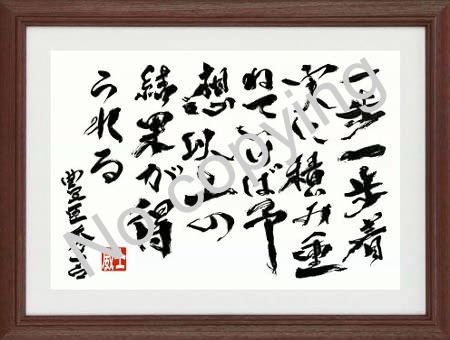 一歩一歩着
実に積み重
ねていけば予
想以上の
結果が得
られる
豊臣秀吉
No copying